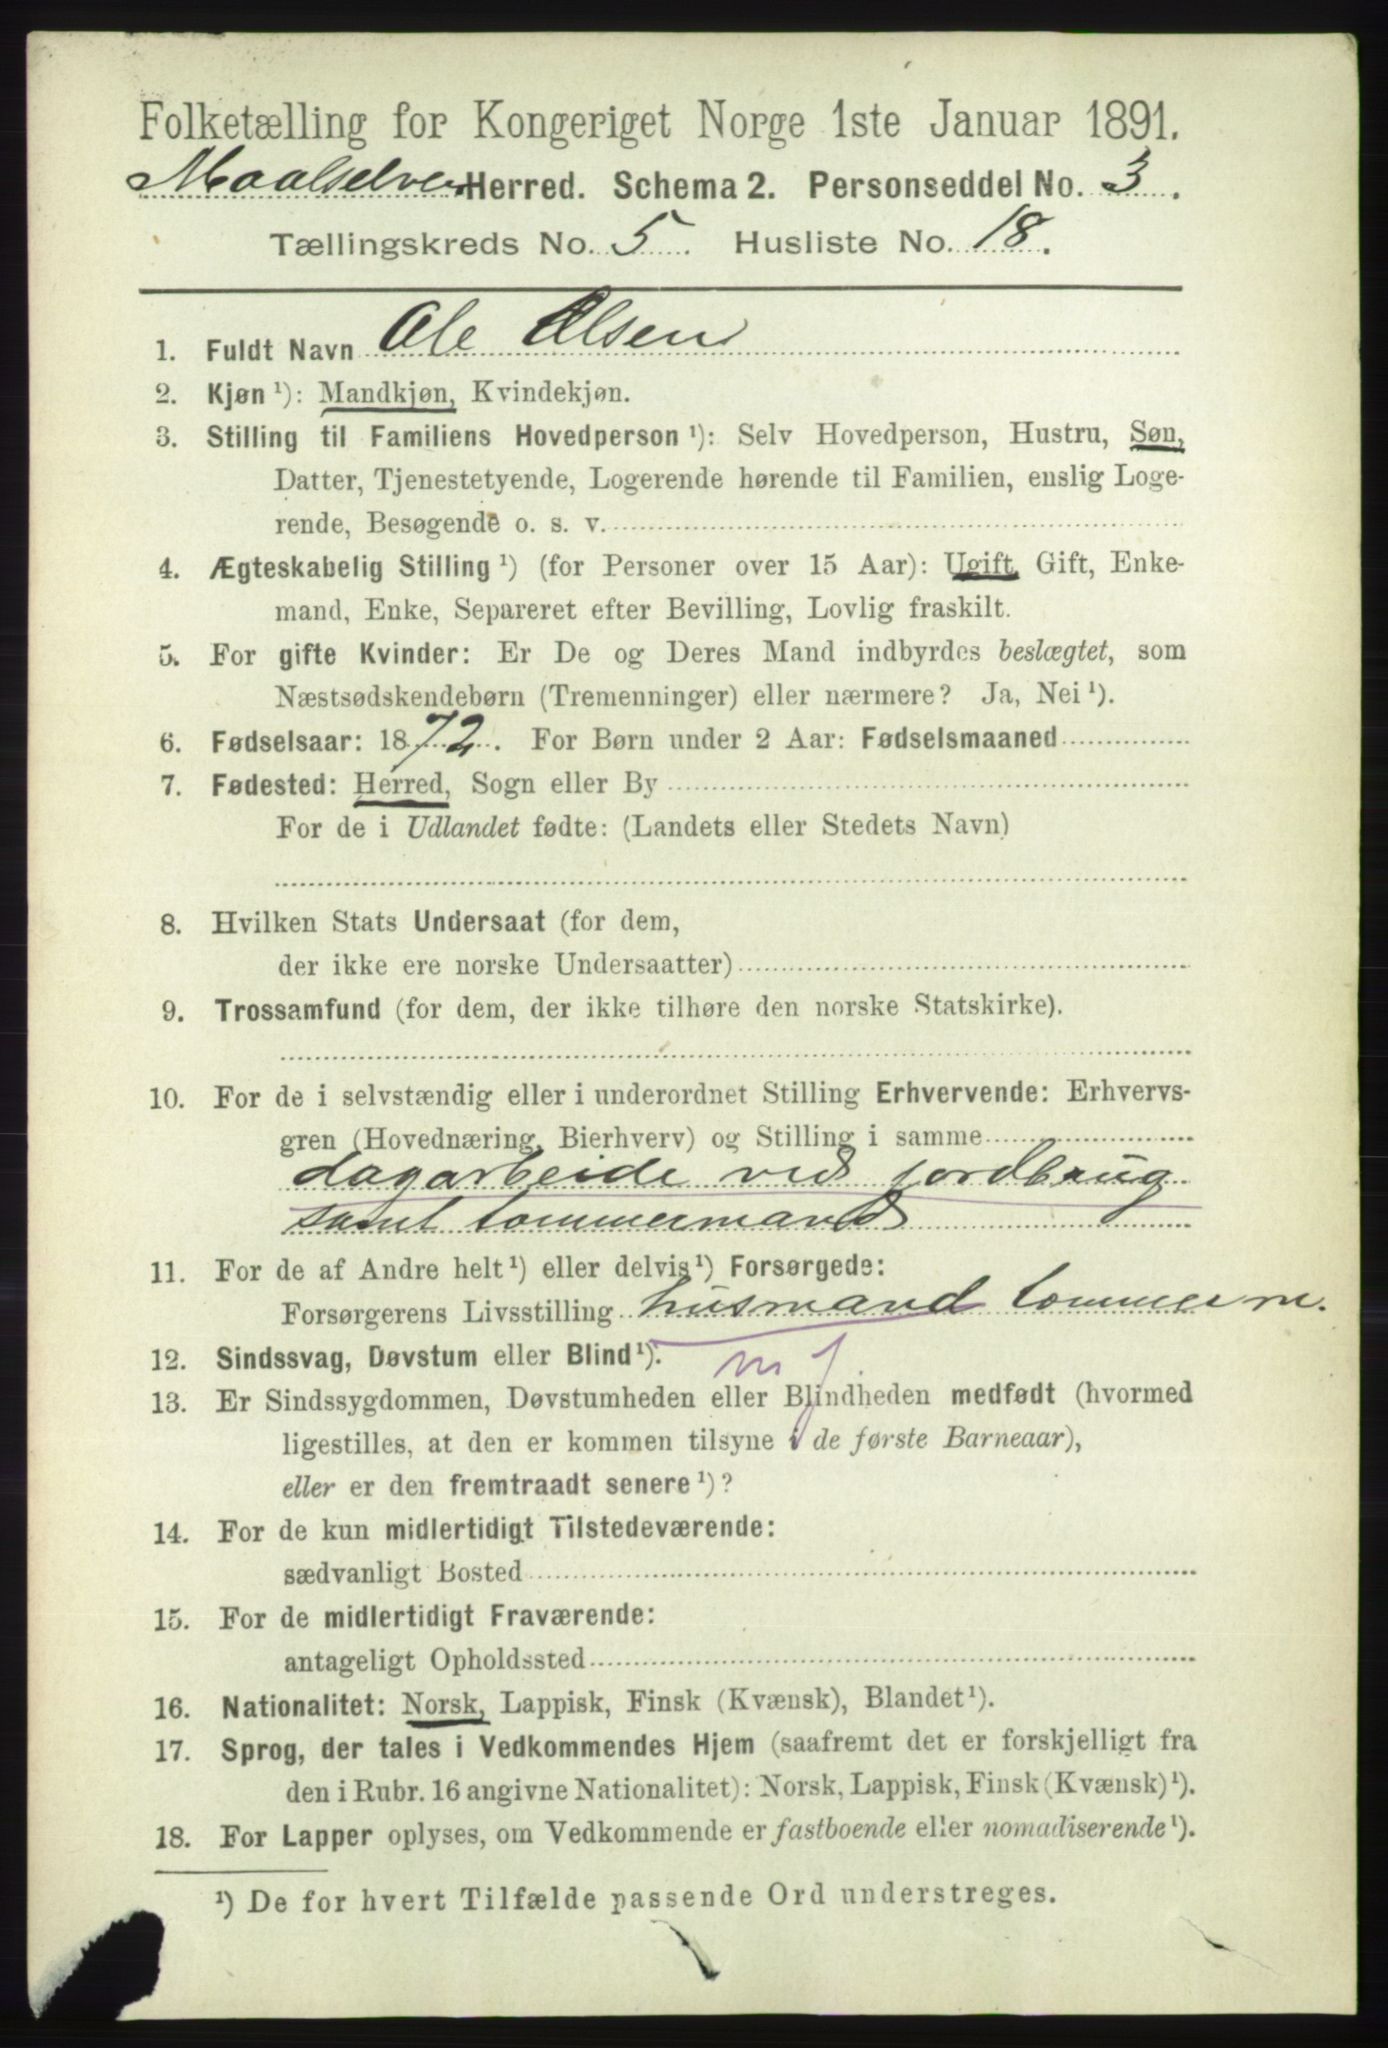 Folketælling for Kongeriget Norge 1ste Januar 1891.
Maalselven Herred. Schema 2. Personseddel No. 3.
Tællingskreds No. 5. Husliste No. 18.
1. Fuldt Navn Ole Olsen
2. Kjøn¹): Mandkjøn, Kvindekjøn.
3. Stilling til Familiens Hovedperson¹): Selv Hovedperson, Hustru, Søn,
Datter, Tjenestetyende, Logerende hørende til Familien, enslig Loge-
rende, Besøgende o. s. v.
4. Ægteskabelig Stilling¹) (for Personer over 15 Aar): Ugift, Gift, Enke-
mand, Enke, Separeret efter Bevilling, Lovlig fraskilt.
5. For gifte Kvinder: Er De og Deres Mand indbyrdes beslægtet, som
Næstsødskendebørn (Tremenninger) eller nærmere? Ja, Nei¹).
6. Fødselsaar: 1872. For Børn under 2 Aar: Fødselsmaaned
7. Fødested: Herred, Sogn eller By
For de i Udlandet fødte: (Landets eller Stedets Navn)
8. Hvilken Stats Undersaat (for dem,
der ikke ere norske Undersaatter)
9. Trossamfund (for dem, der ikke tilhøre den norske Statskirke).
10. For de i selvstændig eller i underordnet Stilling Erhvervende: Erhvervs-
gren (Hovednæring, Bierhverv) og Stilling i samme
dagarbeide ved jordbrug
samt tommermand
11. For de af Andre helt¹) eller delvis¹) Forsørgede:
Forsørgerens Livsstilling husmand tommerm.
12. Sindssvag, Døvstum eller Blind¹).
13. Er Sindssygdommen, Døvstumheden eller Blindheden medfødt (hvormed
ligestilles, at den er kommen tilsyne i de første Barneaar),
eller er den fremtraadt senere¹)?
14. For de kun midlertidigt Tilstedeværende:
sædvanligt Bosted
15. For de midlertidigt Fraværende:
antageligt Opholdssted
16. Nationalitet: Norsk, Lappisk, Finsk (Kvænsk), Blandet¹).
17. Sprog, der tales i Vedkommendes Hjem (saafremt det er forskjelligt fra
den i Rubr. 16 angivne Nationalitet): Norsk, Lappisk, Finsk (Kvænsk)¹).
18. For Lapper oplyses, om Vedkommende er fastboende eller nomadiserende¹).
¹) De for hvert Tilfælde passende Ord understreges.